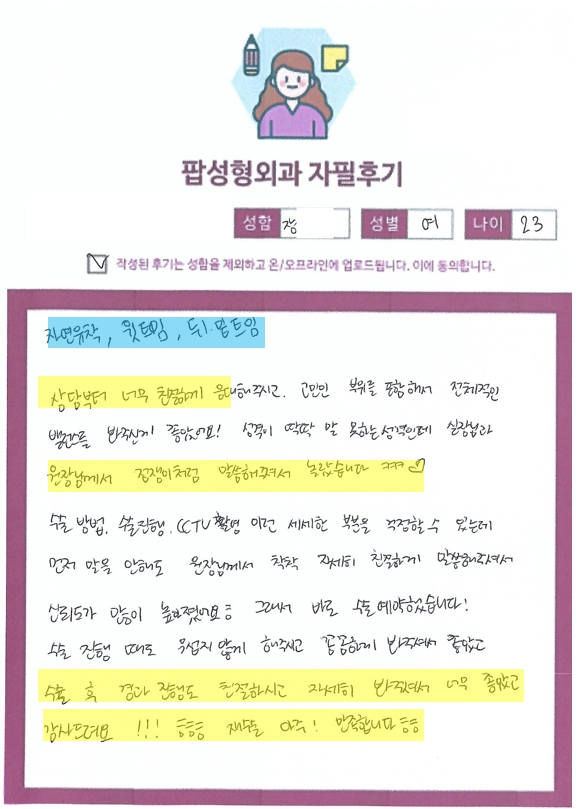 팝성형외과 자필후기
성함 장 성별 여 나이 23
작성된 후기는 성함을 제외하고 온/오프라인에 업로드됩니다. 이에 동의합니다.
자연유착, 윗트임, 뒤·밑트임
상담부터 너무 친절하게 응대해주시고. 고민인 부위를 포함해서 전체적인
밸런스를 봐주신게 좋았어요! 성격이 딱딱 말 못하는 성격인데 실장님과
원장님께서 점쟁이처럼 말씀해주셔서 놀랐습니다 ㅋㅋㅋ♡
수술 방법, 수술진행, CCTV 촬영 이런 세세한 부분을 걱정할 수 있는데
먼저 말을 안해도 원장님께서 착착 자세히 친절하게 말씀해주셔서
신뢰도가 많이 높아졌어요ㅎㅎ 그래서 바로 수술예약하였습니다!
수술 진행 때도 무섭지 않게 해주시고 꼼꼼하게 봐주셔서 좋았고
수술 후 경과 진행도 친절하시고 자세히 봐주셔서 너무 좋았고
감사드려요 !!! ㅎㅎㅎ 재수술 아주! 만족합니다ㅎㅎ